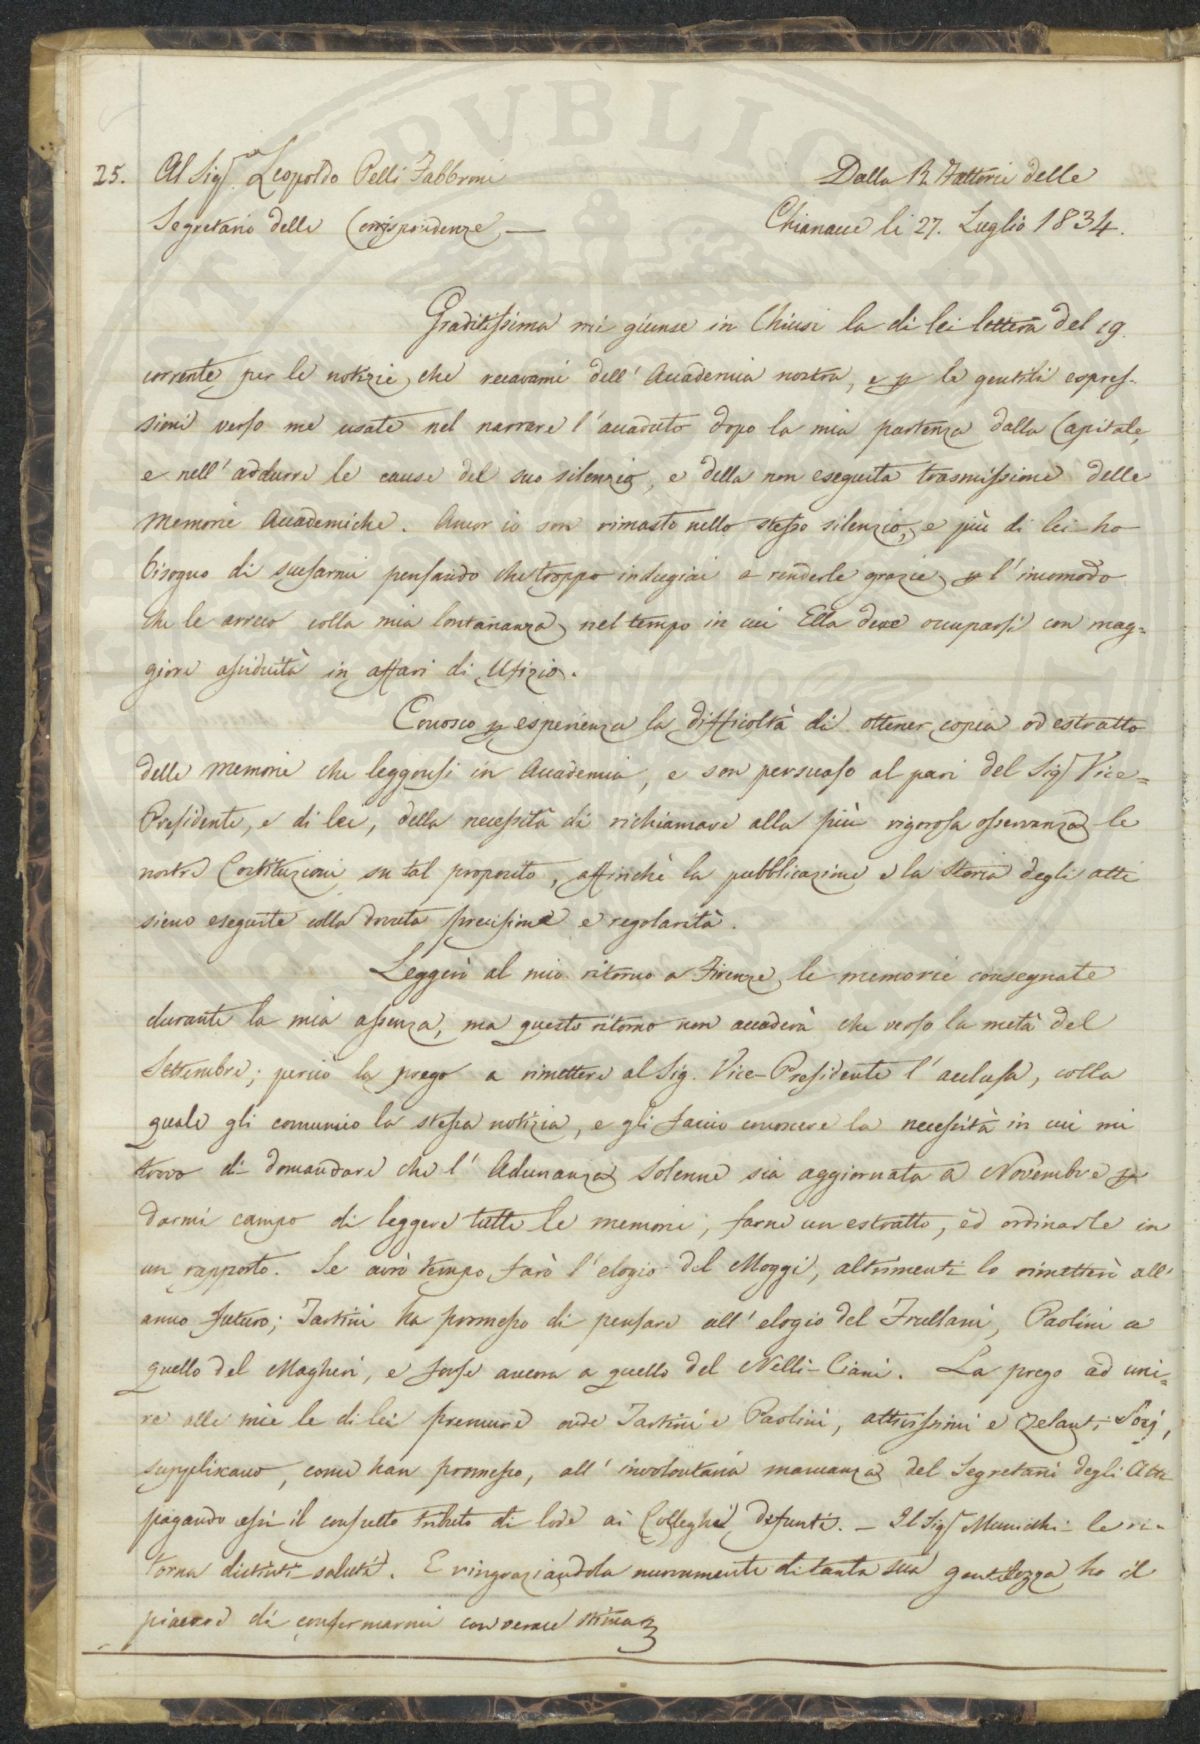 25. Al Sig.re Leopoldo Pelli Fabbroni
Segretario delle Corrispondenze —
Dalla R. Fattoria delle
Chianacce li 27. Luglio 1834.
Graditissima mi giunse in Chiusi la di lei lettera del 19.
corrente per le notizie, che recavami dell' Accademia nostra, e p le gentili espres-
sioni verso me usate nel narrare l'accaduto dopo la mia partenza dalla Capitale,
e nell' addurre le cause del suo silenzio, e della non eseguita trasmissione delle
Memorie Accademiche. Ancor io son rimasto nello stesso silenzio, e più di lei ho
bisogno di scusarmi pensando che troppo indugiai a renderle grazie p l'incomodo
che le arreco colla mia lontananza, nel tempo in cui Ella deve occuparsi con mag=
giore assiduità in affari di Ufizio.
Conosco p esperienza la difficoltà di ottener copia od estratto
delle Memorie che leggonsi in Accademia, e son persuaso al pari del Sig.r Vice=
Presidente, e di lei, della necessità di richiamare alla più rigorosa osservanza le
nostre Costituzioni su tal proposito, affinchè la pubblicazione e la Storia degli atti
sieno eseguite colla dovuta precisione e regolarità.
Leggerò al mio ritorno a Firenze, le memorie consegnate
durante la mia assenza, ma questo ritorno non accaderà che verso la metà del
Settembre; perciò la prego a rimettere al Sig. Vice-Presidente l'acclusa, colla
quale gli comunico la stessa notizia, e gli faccio conoscere la necessità in cui mi
trovo di domandare che l' Adunanza solenne sia aggiornata a Novembre p
darmi campo di leggere tutte le memorie, farne un estratto, ed ordinarle in
un rapporto. Se avrò tempo farò l'elogio del Moggi, altrimenti lo rimetterò all'
anno futuro; Tartini ha promesso di pensare all' elogio del Frullani, Paolini a
quello del Magheri, e forse ancora a quello del Nelli-Ciani. La prego ad uni=
re alle mie le di lei premure onde Tartini e Paolini, attivissimi e zelanti Socj,
suppliscano, come han promesso, all' involontaria mancanza del Segretario degli Atti
pagando essi il consueto tributo di lode ai Colleghi defunti. — Il Sig.r Municchi le ri=
torna distinti saluti. E ringraziandola nuovamente di tanta sua gentilezza ho il
piacere di confermarmi con verace stima